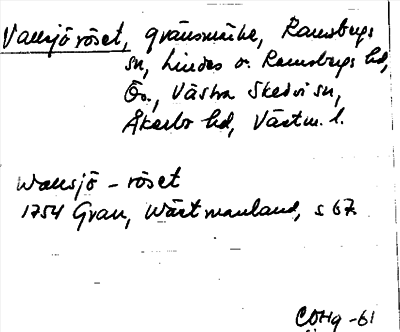 Vallsjö röset, gränsmärke, Ramsbergs
sn, Lindes o. Ramsbergs hd,
Ör., Västra Skedvi sn,
Åkerbo hd, Västm. l.
Wallsjö - röset
1754 Grau, Wäst manland, s 67.
COHg -61